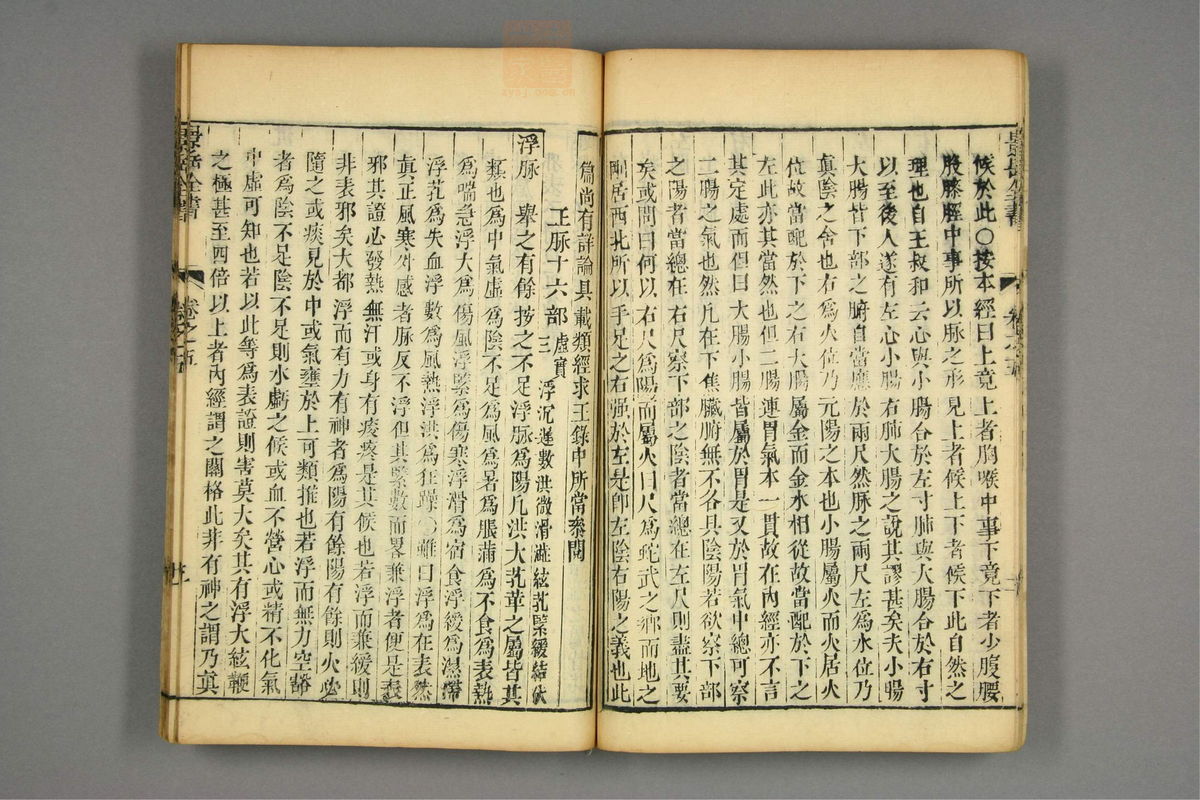 候於此○按本經曰上竟上者胸喉中事下竟下者少腹腰
股膝脛中事所以脉之形見上者候上下者候下此自然之
理也自王叔和云心與小腸合於左寸肺與大腸合於右寸
以至後人遂有左心小腸右肺大腸之說其謬甚矣夫小腸
大腸皆下部之腑自當應於兩尺然脉之兩尺左爲水位乃
眞陰之舍也右爲火位乃元陽之本也小腸屬火而火居火
位故當配於下之右大腸屬金而金水相從故當配於下之
左此亦其當然也但二腸連胃氣本一貫故在內經亦不言
其定處而但曰大腸小腸皆屬於胃是又於胃氣中總可察
二腸之氣也然凡在下焦臟腑無不各具陰陽若欲察下部
之陽者當總在右尺察下部之陰者當總在左尺則盡其要
矣或問曰何以右尺爲陽而屬火曰尺爲蛇武之鄉而地之
剛居西北所以手足之右强於左是卽左陰右陽之義也此
篇尚有詳論具載類經求正錄中所當叅閱
正脉十六部三 浮沉遲數洪微滑濇弦芤緊緩結伏虛實
浮脉 舉之有餘按之不足浮脉爲陽凡洪大芤革之屬皆其
類也爲中氣虛爲陰不足爲風爲暑爲脹滿爲不食爲表熱
爲喘急浮大爲傷風浮緊爲傷寒浮滑爲宿食浮緩爲濕滯
浮芤爲失血浮數爲風熱浮洪爲狂躁○雖曰浮爲在表然
眞正風寒外感者脉反不浮但其緊數而畧兼浮者便是表
邪其證必發熱無汗或身有痠疼是其候也若浮而兼緩則
非表邪矣大都浮而有力有神者爲陽有餘陽有餘則火必
隨之或痰見於中或氣壅於上可類推也若浮而無力空豁
者爲陰不足陰不足則水虧之候或血不營心或精不化氣
中虛可知也若以此等爲表證則害莫大矣其有浮大弦鞕
之極甚至四倍以上者內經謂之關格此非有神之謂乃眞
景岳全書
卷之五